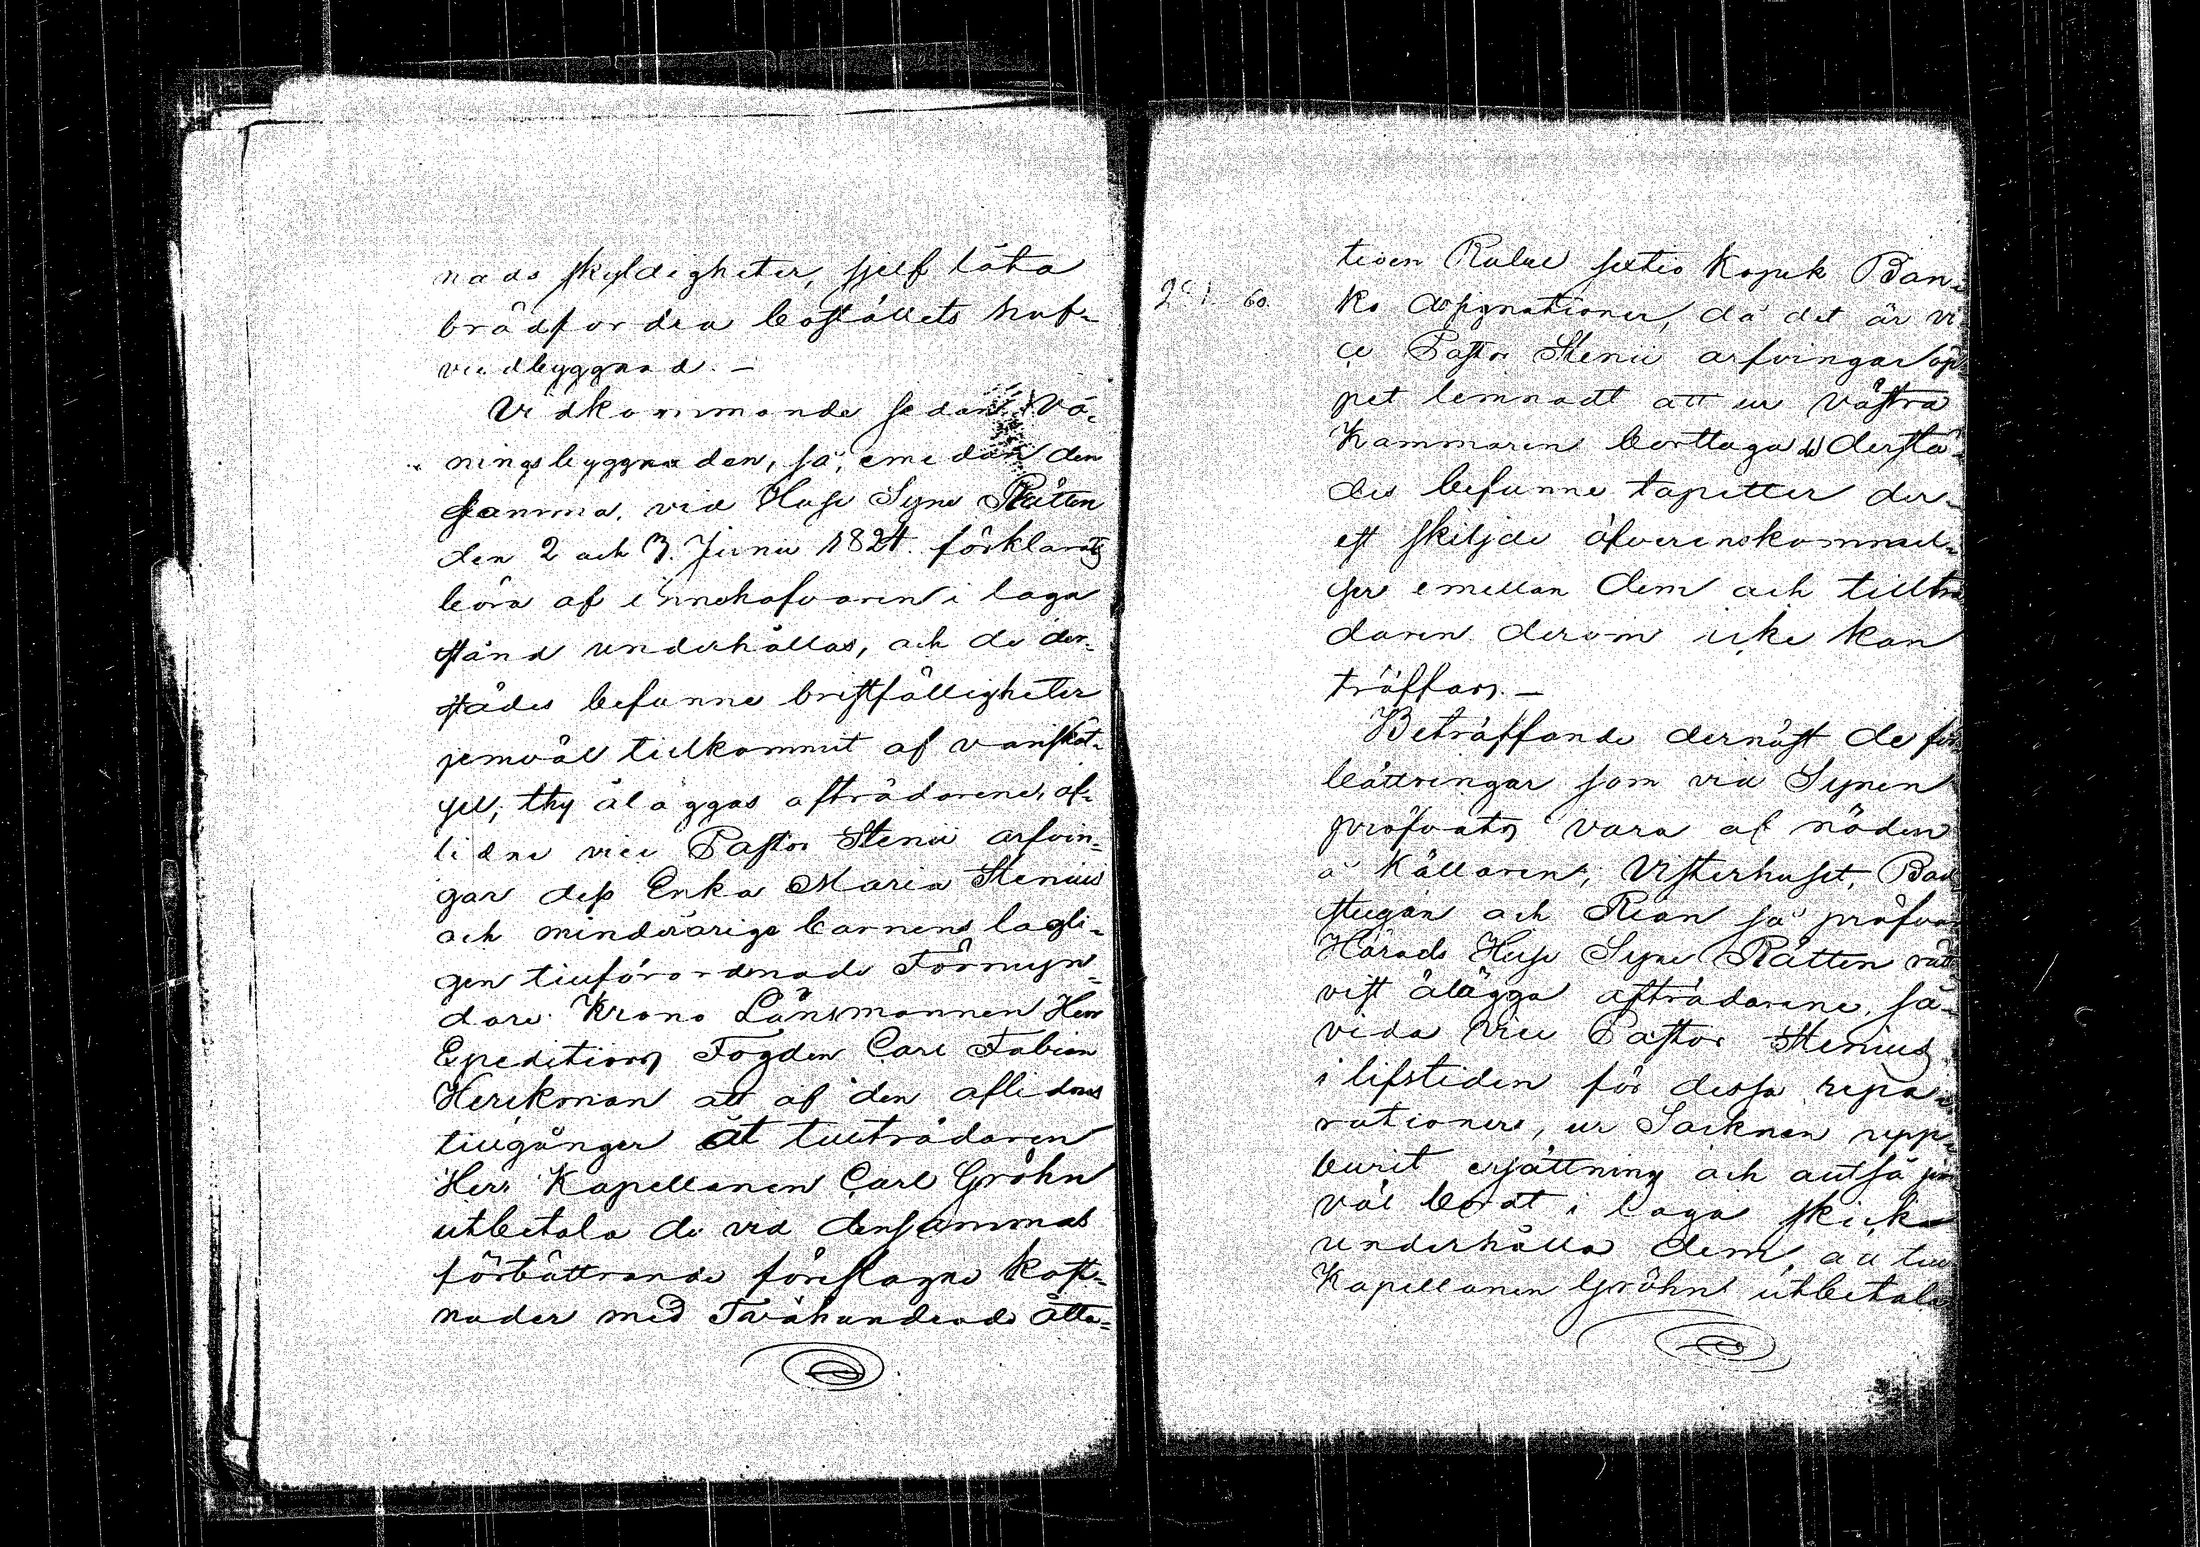 nads skyldigheter, sjelf låta
brädfordra boställets huf-
vudbyggnad. –
Vidkommande sedan Vå-
ningsbyggnaden, så, emedan den
samma, vid Huse Syne Rätten
den 2 och 3. Junii 1824. förklarats
böra af innehafvaren i laga
stånd underhållas, och de der-
städes befunne bristfälligheter
jemväl tillkommit af vanskött-
sel, thy åläggas afträdarene, af-
lidne vice Pastor Stenii arfvin-
gar dess Enka Maria Stenius
och minderårige barnens lagli-
gen tillförordnade Förmyn-
dare Krono Länsmannen Herr
Expeditions Fogden Carl Fabian
Herckman att af den aflidnes
tillgångar åt tillträdaren
Herr Kapellanen Carl Gröhn
utbetala de vid densammas
förbättrande föreslagne kost-
nader med Tvåhundrade åtta-
tioen Rubel sextio Kopek Ban-
60.
ko Assignationer, då det är vi-
ce Pastor Stenii arfvingar öp-
pet lemnadt att ur västra
Kammaren borttaga de derstä-
des befunne tapetter der-
est skiljde öfverenskommel-
ser emellan dem och tillträ
daren derom icke kan
träffas. –
Beträffande dernäst de för
bättringar som vid Synen
pröfvats vara af nöden
å Källaren, Visterhuset, Bad
stugan och Rian så pröfvar
Härads Huse Syne Rätten rätt-
vist ålägga afträdarene, så-
vida Vice Pastor Stenius
i lifstiden för dessa repa-
rationer, ur Socknen upp-
burit ersättning och altså jem
väl bordt i laga skick
underhålla dem, att till
Kapellanen Gröhn utbetala